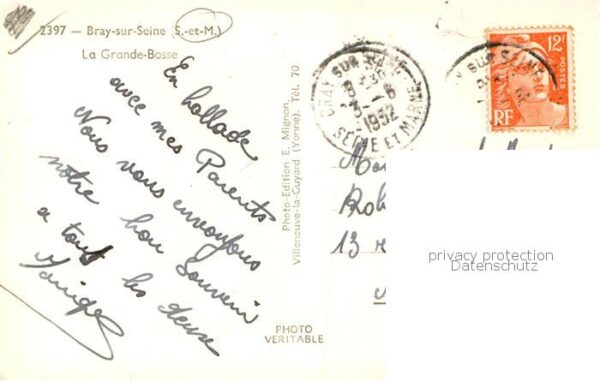 2397 — Bray-sur-Seine (S.-et-M.)
La Grande-Bosse
En hallade
avec mes Parents
Nous vous envoyons
notre bon Souvenir
a tout les deux
Photo-Edition E. Mignon
Villeneuve-la-Guyard (Yonne). Tél. 70
PHOTO
VERITABLE
BRAY SUR SEINE
1952
SEINE ET MARNE
SUR SEINE
12F
POSTES
RF
13
privacy protection
Datenschutz